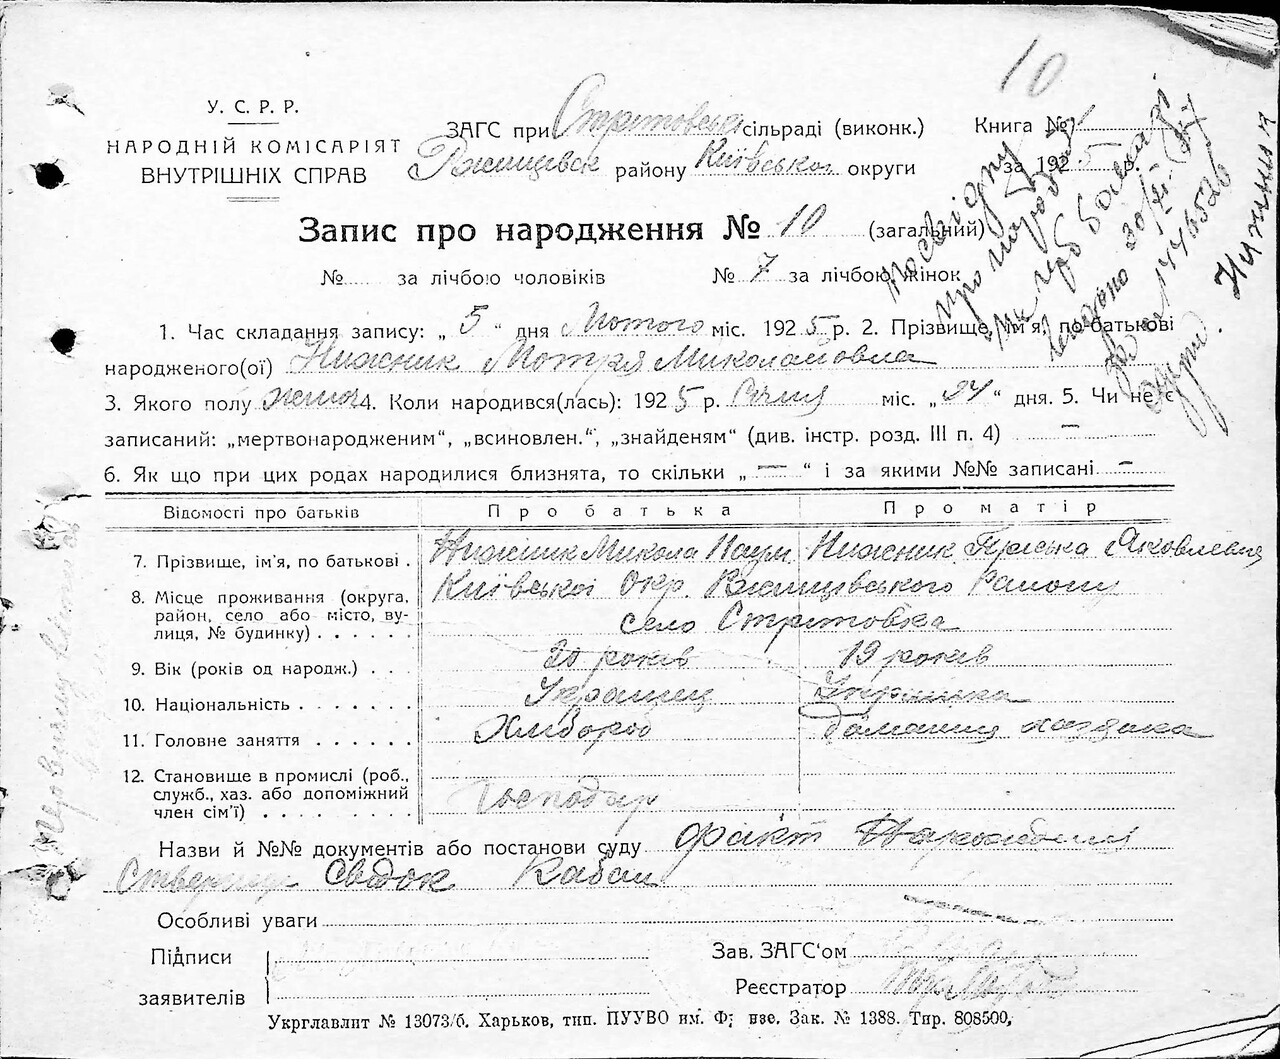 10
У. С. Р. Р.
НАРОДНІЙ КОМІСАРІЯТ
ВНУТРІШНІХ СПРАВ
ЗАГС при Стритовські сільраді (виконк.)
Ржищевськ району Київської округи
Книга №
за 1925 р.
Запис про народження № 10 (загальний)
№ за лічбою чоловіків № 7 за лічбою жінок
1. Час складання запису: „ 5 “ дня Лютого міс. 1925 р. 2. Прізвище, ім'я, по батькові
народженого(ої) Нижник Мотря Миколайовна
3. Якого полу жіноч 4. Коли народився(лась): 1925 р. Січня міс. „ 24 “ дня. 5. Чи не є
записаний: „мертвонародженим“, „всиновлен.“, „знайденям“ (див. інстр. розд. III п. 4) —
6. Як що при цих родах народилися близнята, то скільки „ — “ і за якими №№ записані —
Відомості про батьків Про батька Про матір
7. Прізвище, ім'я, по батькові . Нижник Микола Наум. Нижник Пріська Яковлевна
8. Місце проживання (округа, Київської Окр. Ржищівського Району
район, село або місто, ву-
лиця, № будинку) . . . . . село Стритовка
9. Вік (років од народж.) . . 20 років 19 років
10. Національність . . . . . . . Украінец Украінка
11. Головне заняття . . . . . . Хлібороб домашня хазяйка
12. Становище в промислі (роб.,
служб., хаз. або допоміжний Господар
член сім'ї) . . . . . . . . .
Назви й №№ документів або постанови суду факт Народження
Ствержую Свідок Кабан
Особливі уваги
Підписи
заявителів
Зав. ЗАГС'ом
Реєстратор
Укрглавлит № 13073/б. Харьков, тип. ПУУВО им. Ф; нзе. Зак. № 1388. Тир. 808500,
посвідку
про народж
Нижник